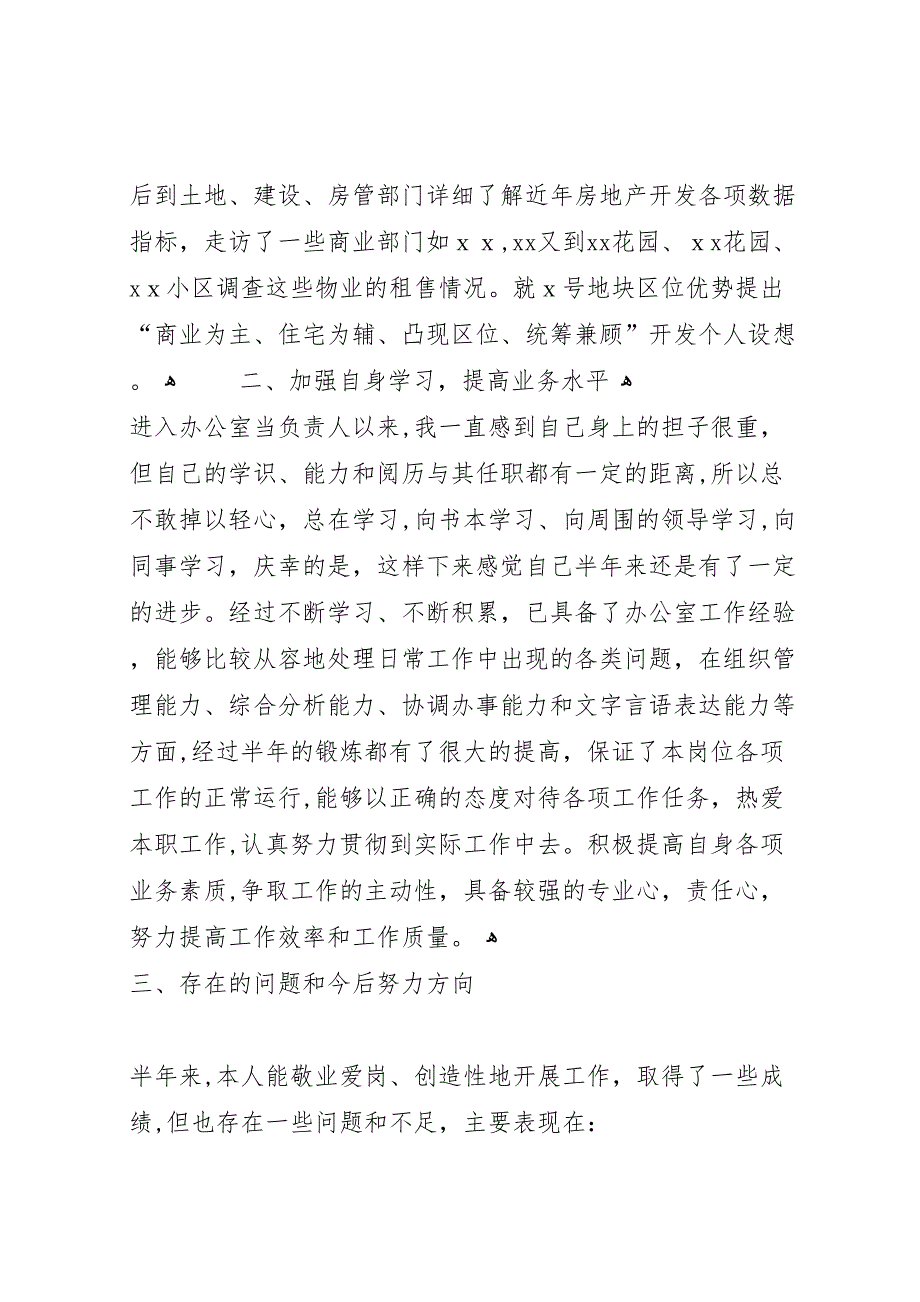 后到土地、建设、房管部门详细了解近年房地产开发各项数据
指标，走访了一些商业部门如ｘｘ,xx又到xx花园、ｘx花园、
xｘ小区调查这些物业的租售情况。就ｘ号地块区位优势提出
“商业为主、住宅为辅、凸现区位、统筹兼顾”开发个人设想
。ﻫ 二、加强自身学习，提高业务水平ﻫ
进入办公室当负责人以来,我一直感到自己身上的担子很重，
但自己的学识、能力和阅历与其任职都有一定的距离,所以总
不敢掉以轻心，总在学习,向书本学习、向周围的领导学习,向
同事学习，庆幸的是，这样下来感觉自己半年来还是有了一定
的进步。经过不断学习、不断积累，已具备了办公室工作经验
，能够比较从容地处理日常工作中出现的各类问题，在组织管
理能力、综合分析能力、协调办事能力和文字言语表达能力等
方面,经过半年的锻炼都有了很大的提高，保证了本岗位各项
工作的正常运行,能够以正确的态度对待各项工作任务，热爱
本职工作,认真努力贯彻到实际工作中去。积极提高自身各项
业务素质,争取工作的主动性，具备较强的专业心，责任心，
努力提高工作效率和工作质量。ﻫ
三、存在的问题和今后努力方向
半年来,本人能敬业爱岗、创造性地开展工作，取得了一些成
绩,但也存在一些问题和不足，主要表现在：